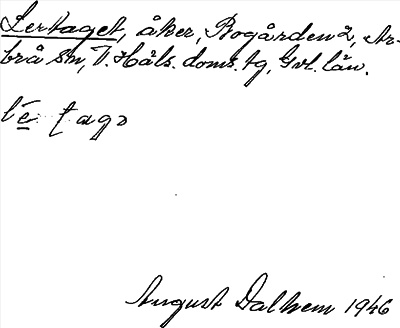 Lertaget, åker, Rogården 2, Ar-
brå sn, V. Häls. doms. tg, Gvl. län.
August Dalhem 1946